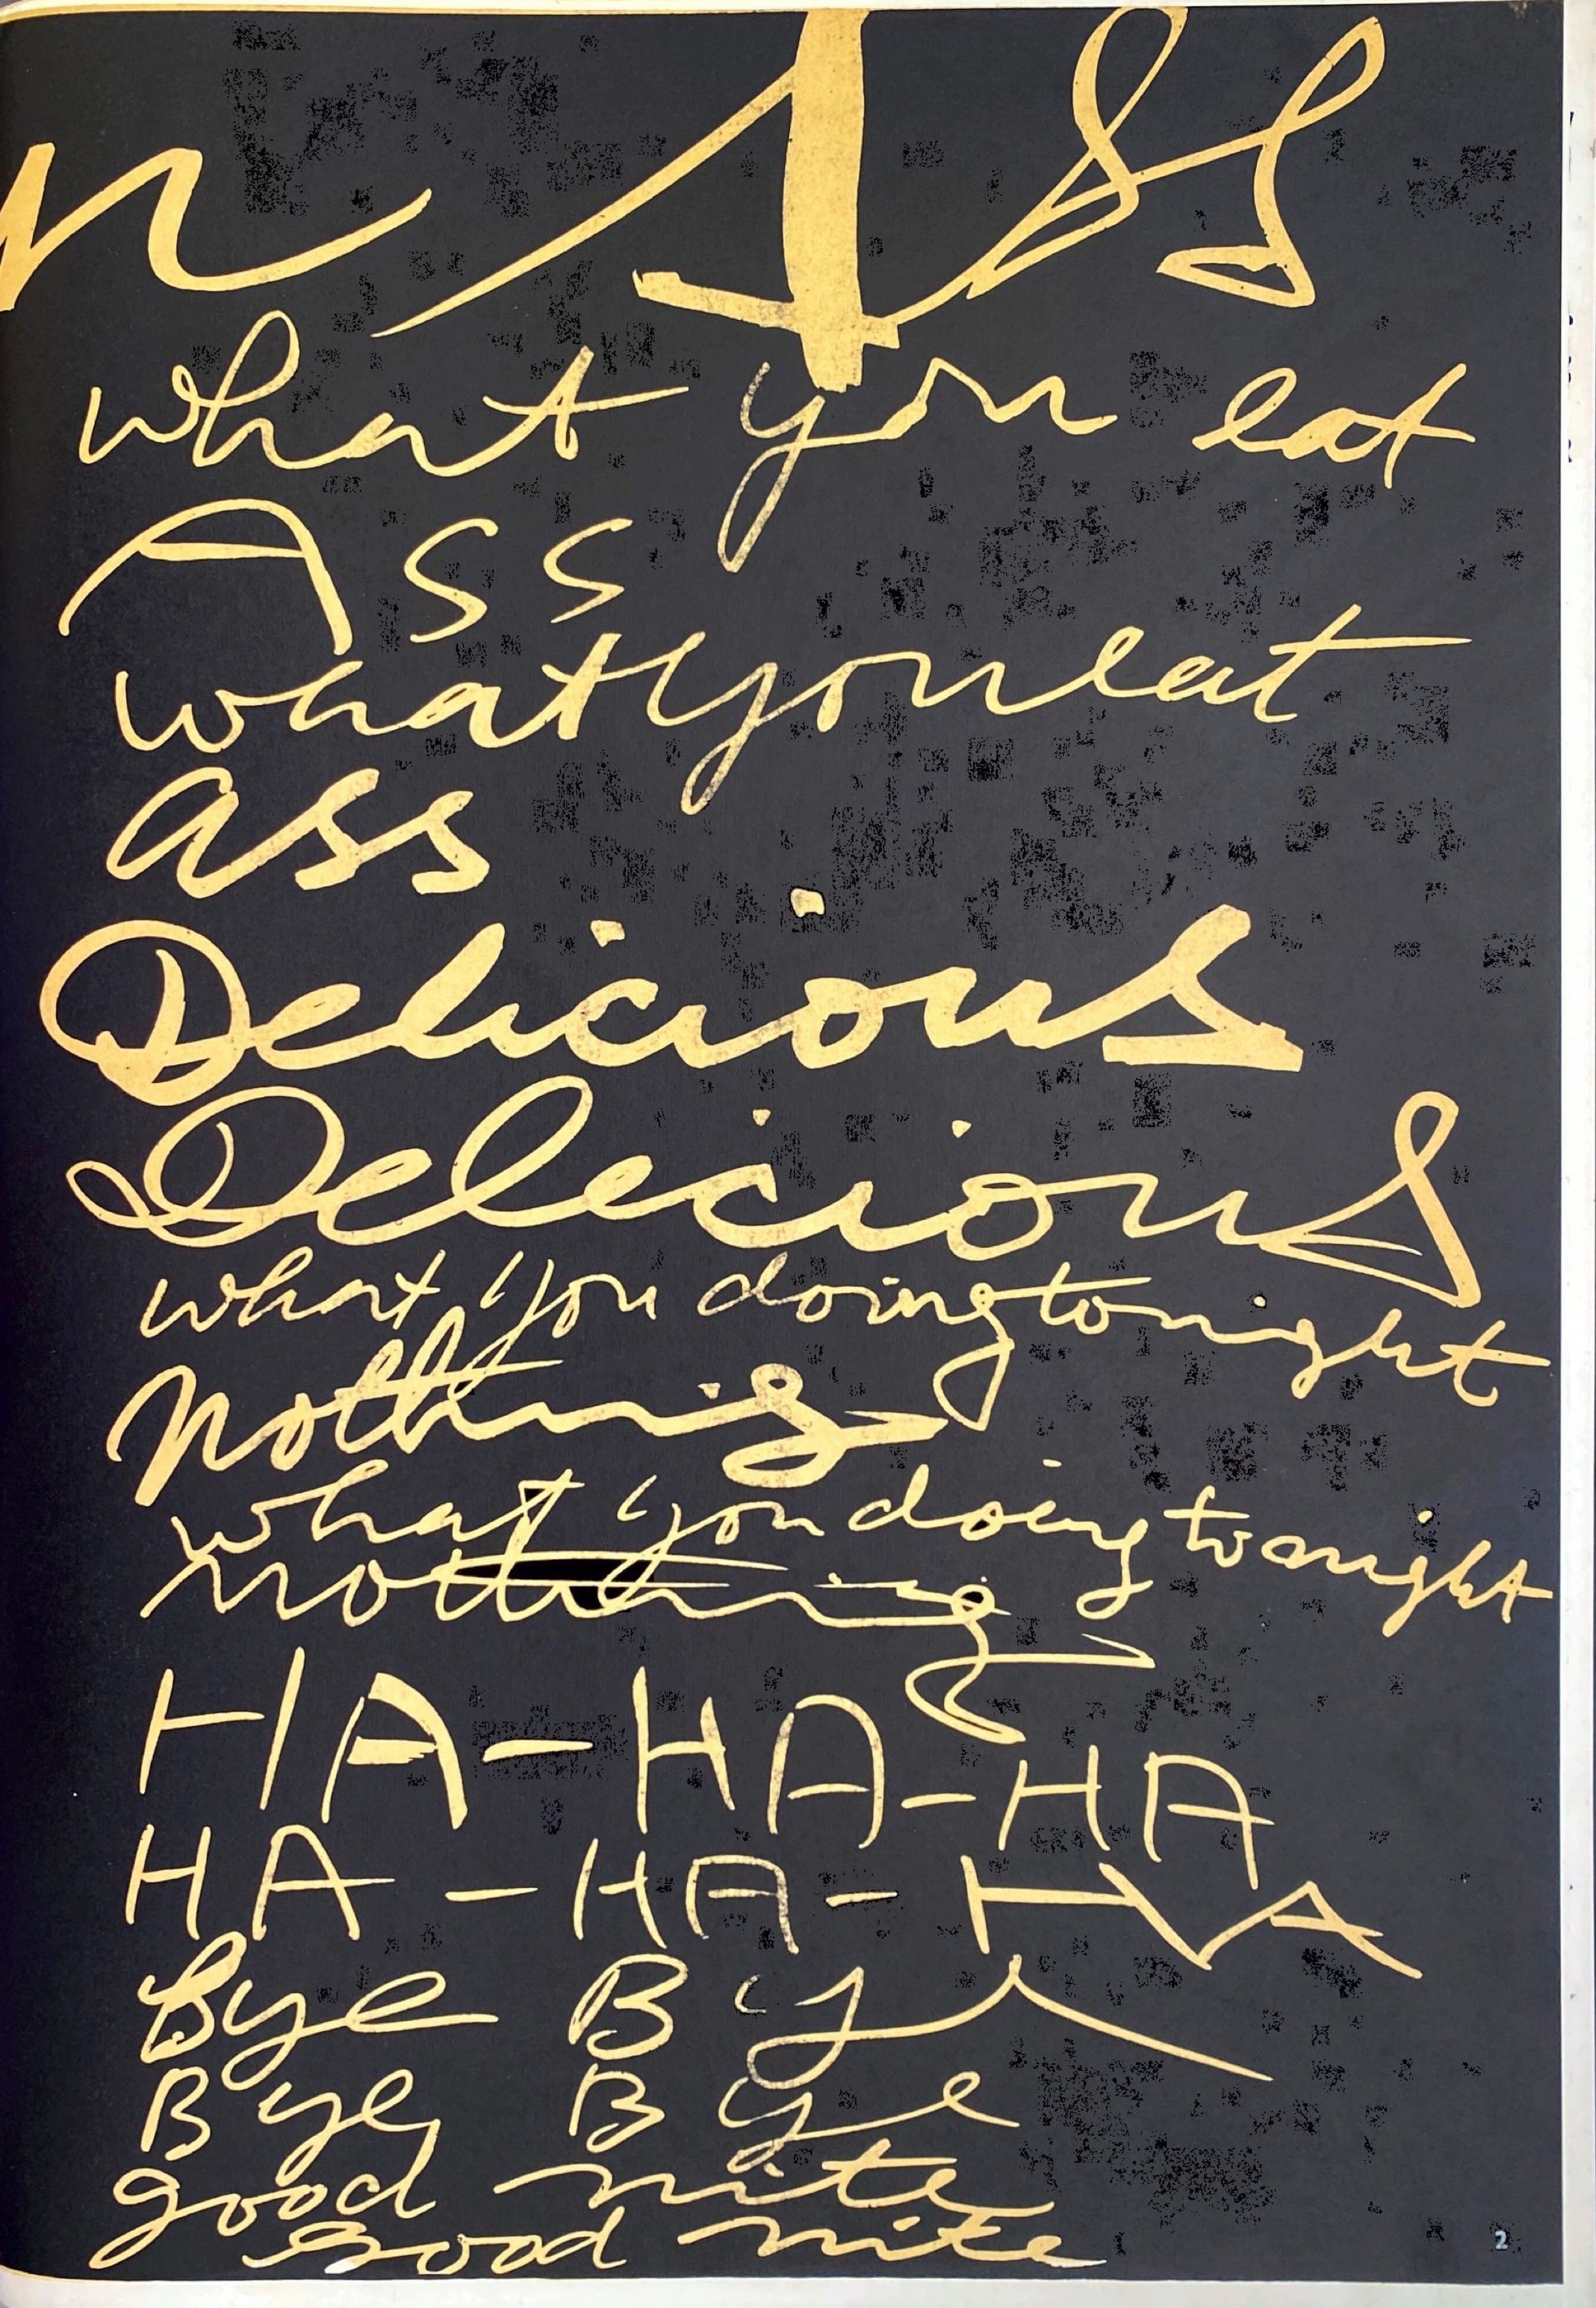 n ASS
what you eat
Ass
what you eat
ass
Delicious
Delicious
what you doing tonight
nothing
what you doing tonight
nothing
HA-HA-HA
HA-HA-HA
Bye Bye
Bye Bye
good nite
good nite
2